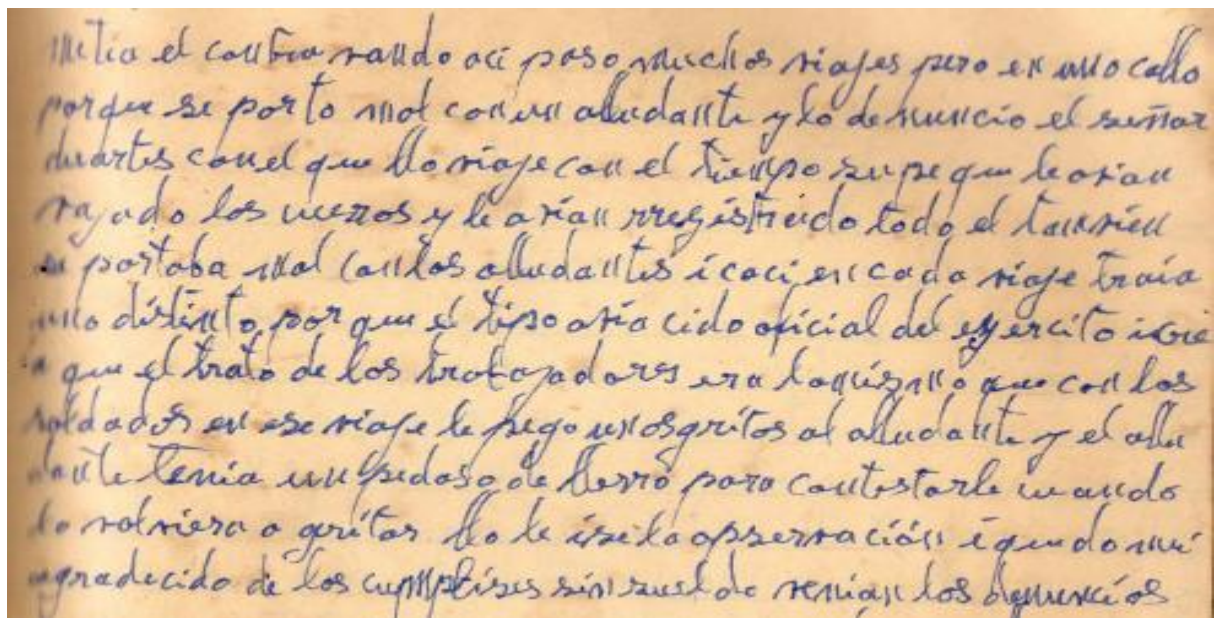 metia el contravando aci paso muchos viajes pero en uno callo
porque se porto mal con un alludante y lo denuncio el señor
duartes con el que llo viaje con el tiempo supe que le avian
rajado los uezzos y le avian rregistrado todo el tanvien
se portaba mal con los alludantes i caci en cada viaje traia
uno distinto por que el tipo avia cido oficial del egercito i
que el trato de los trabajadores era lo mismo que con los
soldados en ese viaje le pego unos gritos al alludante y el allu
dante tenia un pedaso de llerro para contestarle cuando
lo volviera a gritar llo le ise la opservación i quedo mui
agradecido de los sin sueldo venian los denuncios